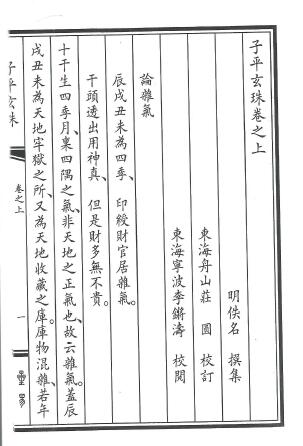 子平玄珠卷之上
明佚名 撰集
東海舟山莊 圓 校訂
東海寧波李鏘濤 校閱
論雜氣
辰戌丑未為四季、印綬財官居雜氣。
干頭透出用神真、但是財多無不貴。
十干生四季月、稟四隅之氣、非天地之正氣也、故云雜氣。蓋辰
戌丑未為天地牢獄之所、又為天地收藏之庫。庫物混雜、若年
子平玄珠
卷之上
一